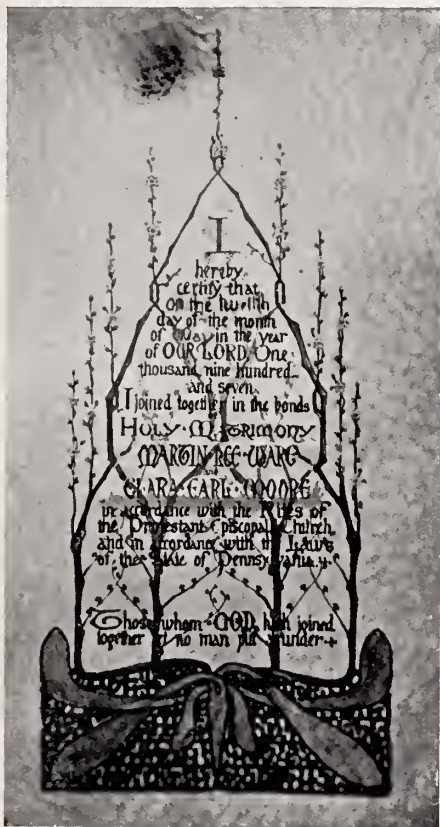 I
hereby
certify that
on the twelfth
day of the month
of May in the year
of OUR LORD One
thousand nine hundred
and seven
I joined together in the bonds
HOLY MATRIMONY
MARTIN LEE WARE
and
CLARA EARL MOORE
in accordance with the Rites of
the Protestant Episcopal Church
and in accordance with the Laws
of the State of Pennsylvania
Those whom GOD hath joined
together let no man put asunder